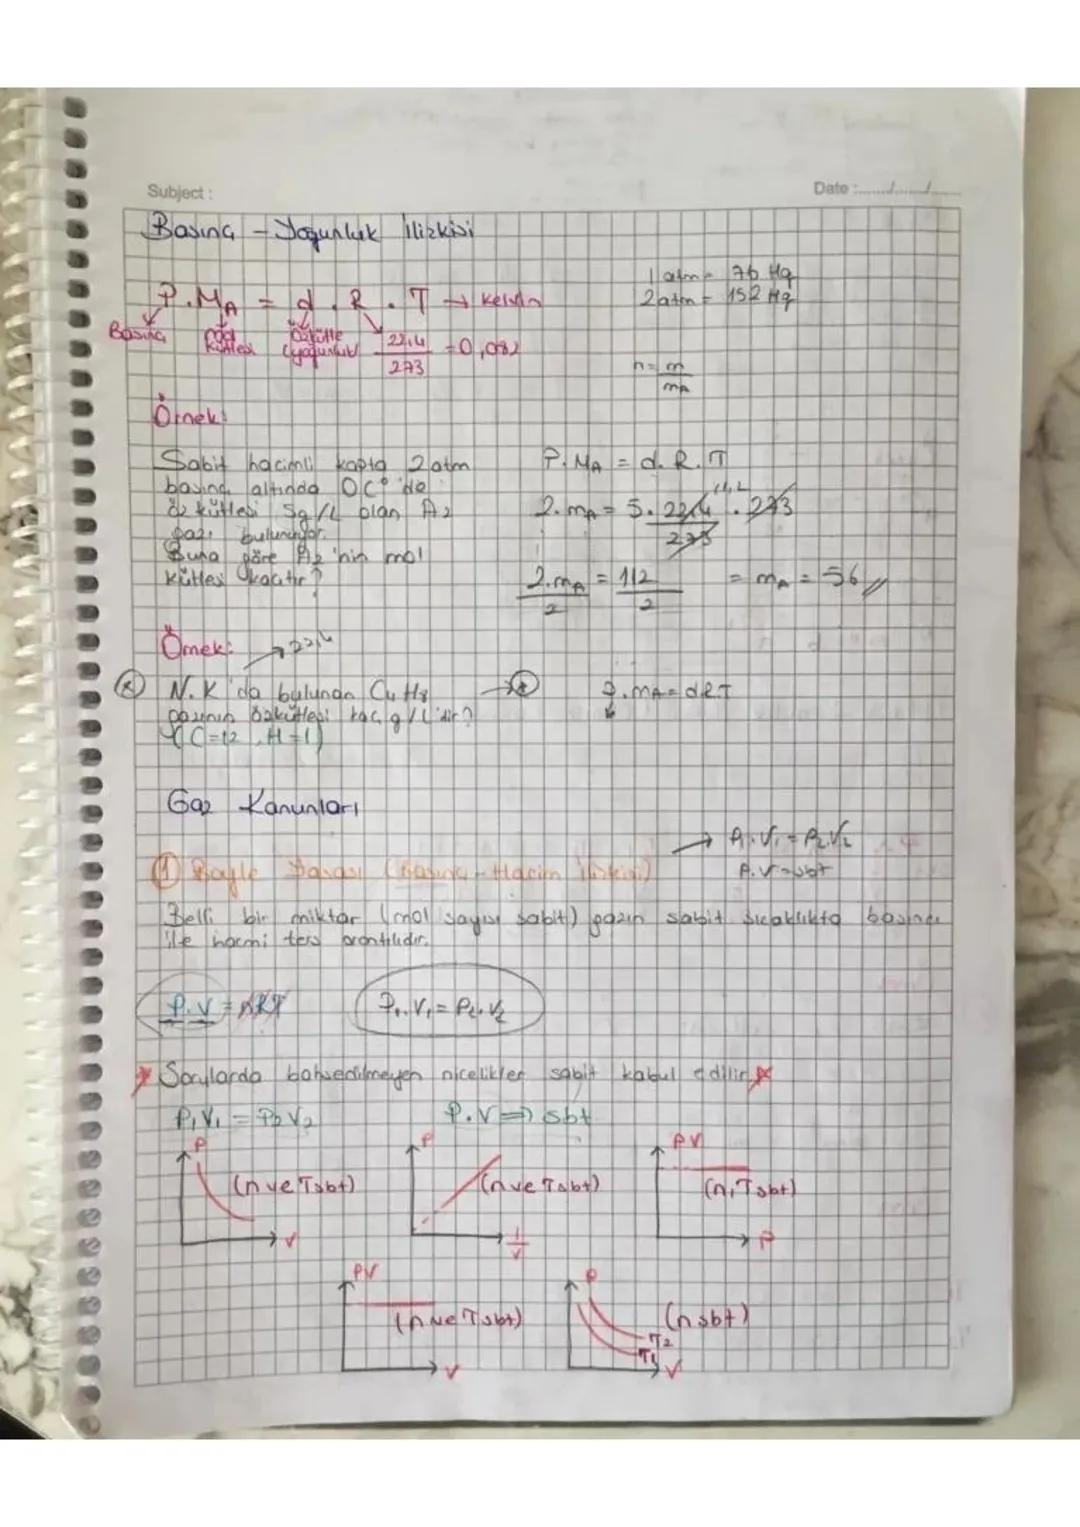 Subject:
Date:......./......./.......
Basınç - Yoğunluk İlişkisi
1 atm = 76 Hg
2 atm = 152 Hg
P.MA = d.R.T → kelvin
Basınç
mol kütlesi
özkütle (yoğunluk)
22,4/273 = 0,082
n = m/mA
Örnek:
Sabit hacimli kapta 2 atm
basınç altında 0C° 'de
özkütlesi 5g/L olan A2
gazı bulunuyor.
Buna göre A2 'nin mol
kütlesi kaçtır?
P.MA = d.R.T
2.mA = 5. 22,4/273 . 273
2.mA/2 = 112/2 = mA = 56
Örnek: → 22,4
N.K 'da bulunan C4H8
gazının özkütlesi kaç g/L'dir?
(C=12, H=1)
P.mA = dRT
Gaz Kanunları
→ P1.V1 = P2.V2
P.V = sbt
① Boyle Yasası (Basınç - Hacim İlişkisi)
Belli bir miktar (mol sayısı sabit) gazın sabit sıcaklıkta basıncı
ile hacmi ters orantılıdır.
P.V = nRT
P1.V1 = P2.V2
* Sorularda bahsedilmeyen nicelikler sabit kabul edilir *
P1V1 = P2V2
P.V ⇒ sbt
P
(n ve T sbt)
V
P
(n ve T sbt)
1/V
PV
(n,T sbt)
P
PV
(n ve T sbt)
V
P
(n sbt)
T2
T1
V